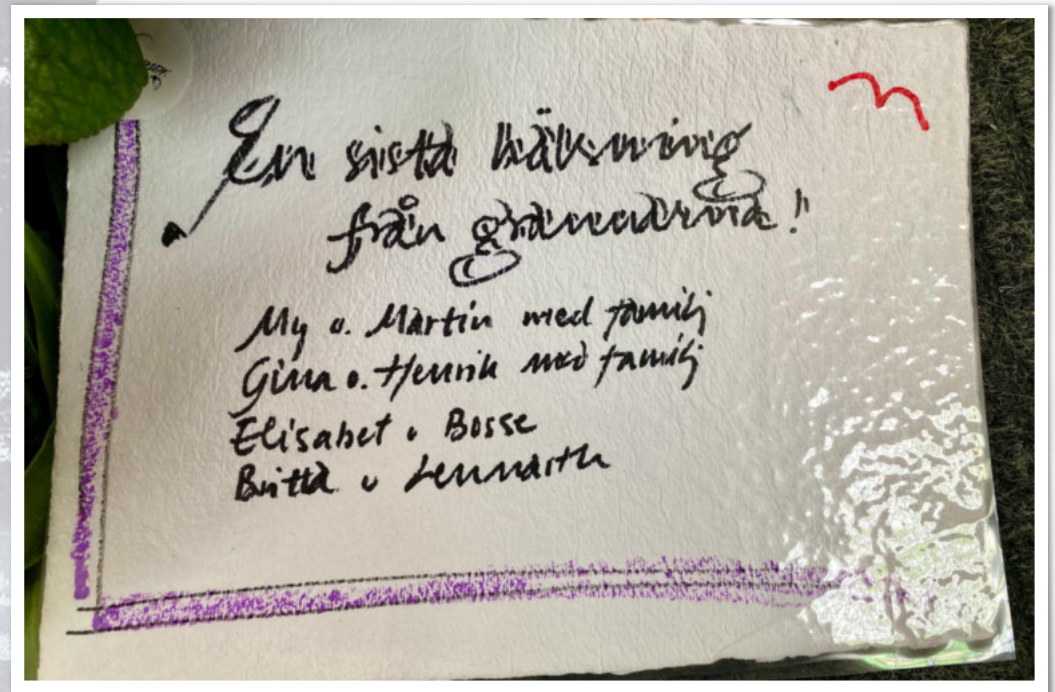 En sista hälsning
från grannarna!
My o. Martin med familj
Gina o. Henrik med familj
Elisabet o Bosse
Britta o Lennarth